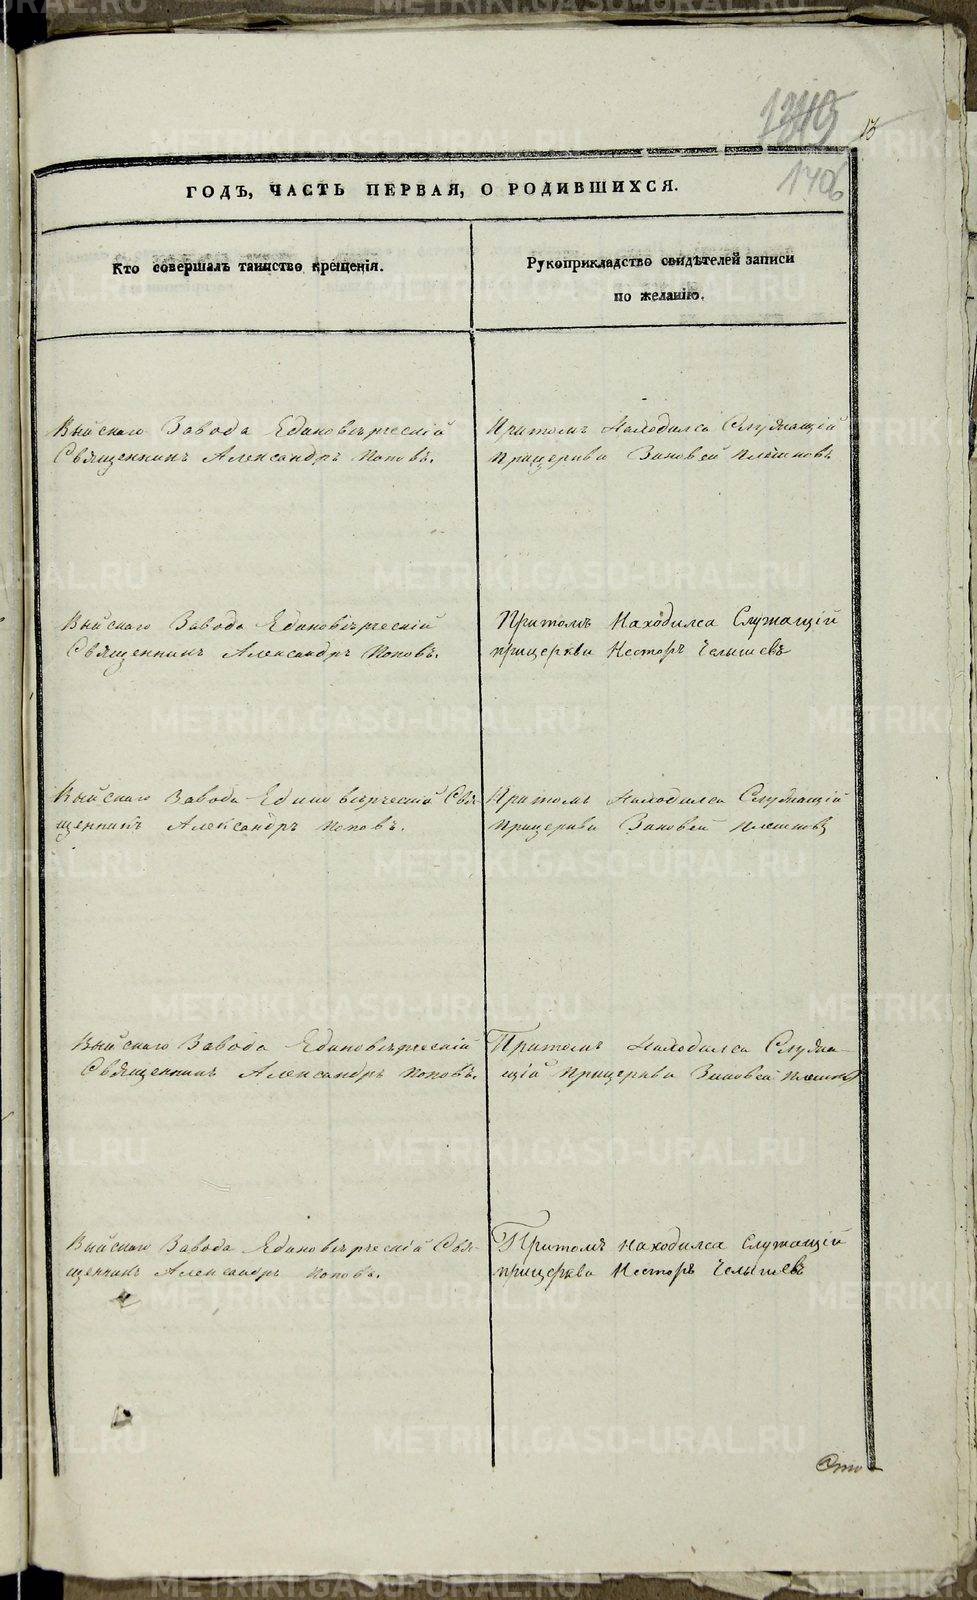 13
1406
ГОДЪ, ЧАСТЬ ПЕРВАЯ, О РОДИВШИХСЯ.
Кто совершалъ таинство крещенія.
Рукоприкладство свидѣтелей записи
по желанію.
Выйскаго Завода Единовѣрческій
Священникъ Александръ Поповъ.
Притомъ Находился Служащій
прицеркви Зиновей Плешковъ
Выйскаго Завода Единовѣрческій
Священникъ Александръ Поповъ.
Притомъ Находился Служащій
прицеркви Несторъ Челышевъ
Выйскаго Завода Единовѣрческій Свя-
щенникъ Александръ Поповъ.
Притомъ Находился Служащій
прицеркви Зиновей Плешковъ
Выйскаго Завода Единовѣрческій
Священникъ Александръ Поповъ.
Притомъ Находился Служа-
щій прицеркви Зиновей
Выйскаго Завода Единовѣрческій Свя-
щенникъ Александръ Поповъ.
Притомъ находился Служащій
прицеркви Несторъ Челышевъ
METRIKI.GASO-URAL.RU